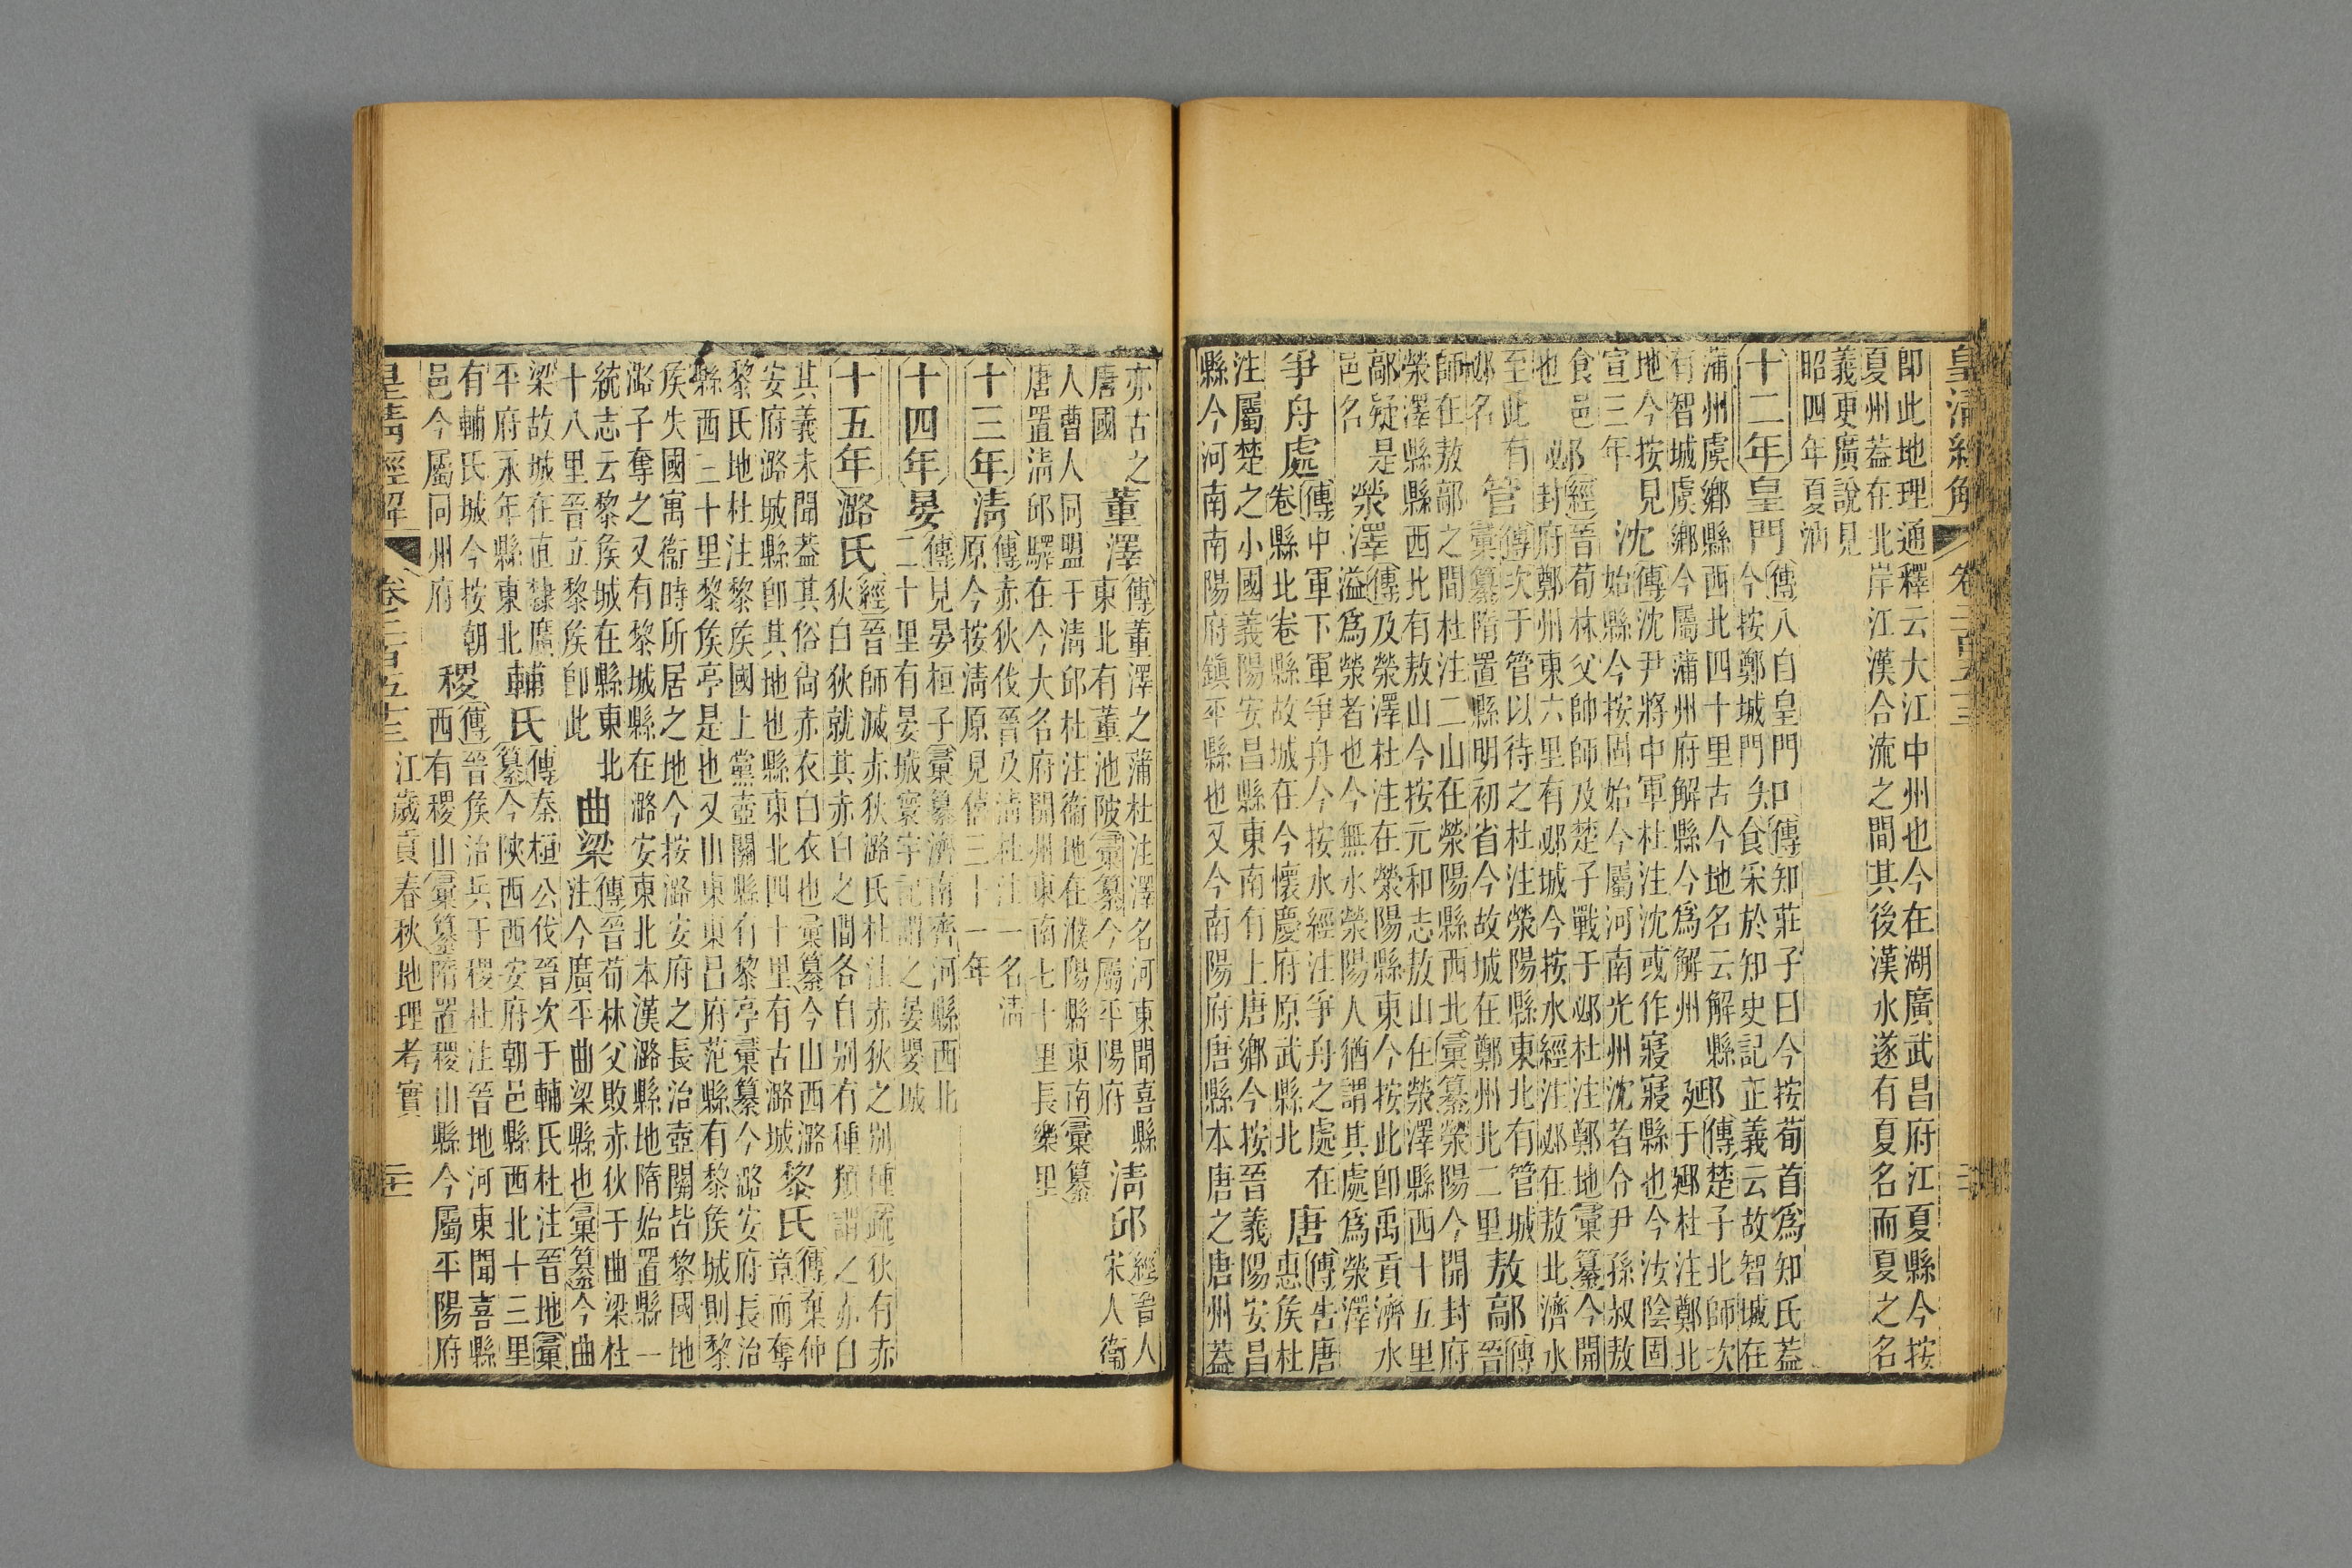 皇清經解 卷二百五十三 二十
即此地理通釋云大江中州也今在湖廣武昌府江夏縣今按
夏州蓋在北岸江漢合流之間其後漢水遂有夏名而夏之名
義更廣說見
昭四年夏汭
十二年
皇門
傳八自皇門
今按鄭城門
知
傳知莊子曰今按荀首爲知氏蓋
食采於知史記正義云故智城在
蒲州虞鄉縣西北四十里古今地名云解縣
有智城虞鄉今屬蒲州府解縣今爲解州
郔
傳楚子北師次
于郔杜注鄭北
地今按見
宣三年
沈
傳沈尹將中軍杜注沈或作寢寢縣也今汝陰固
始縣今按固始今屬河南光州沈者令尹孫叔敖
食邑
也
邲
經晉荀林父帥師及楚子戰于邲杜注鄭地彙纂今開
封府鄭州東六里有邲城今按水經注邲在敖北濟水
至此有
邲名
管
傳次于管以待之杜注滎陽縣東北有管城
彙纂隋置縣明初省今故城在鄭州北二里
敖鄗
傳
晉
師在敖鄗之間杜注二山在滎陽縣西北彙纂滎陽今開封府
滎澤縣縣西北有敖山今按元和志敖山在滎澤縣西十五里
鄗疑是
邑名
滎澤
傳及滎澤杜注在滎陽縣東今按此即禹貢濟水
溢爲滎者也今無水滎陽人猶謂其處爲滎澤
爭舟處
傳中軍下軍爭舟今按水經注爭舟之處在
卷縣北卷縣故城在今懷慶府原武縣北
唐
傳告唐
惠侯杜
注屬楚之小國義陽安昌縣東南有上唐鄉今按晉義陽安昌
縣今河南南陽府鎮平縣也又今南陽府唐縣本唐之唐州蓋
亦古之
唐國
董澤
傳董澤之蒲杜注澤名河東聞喜縣
東北有董池陂彙纂今屬平陽府
清邱
經晉人
宋人衞
人曹人同盟于清邱杜注衞地在濮陽縣東南彙纂
唐置清邱驛在今大名府開州東南七十里長樂里
十三年
清
傳赤狄伐晉及清杜注一名清
原今按清原見僖三十一年
十四年
晏
傳見晏桓子彙纂濟南齊河縣西北
二十里有晏城寰宇記謂之晏嬰城
十五年
潞氏
經晉師滅赤狄潞氏杜注赤狄之別種疏狄有赤
狄白狄就其赤白之間各自別有種類謂之赤白
其義未聞蓋其俗尚赤衣白衣也彙纂今山西潞
安府潞城縣卽其地也縣東北四十里有古潞城
黎氏
傳棄仲
章而奪
黎氏地杜注黎侯國上黨壺關縣有黎亭彙纂今潞安府長治
縣西三十里黎侯亭是也又山東東昌府范縣有黎侯城則黎
侯失國寓衞時所居之地今按潞安府之長治壺關皆黎國地
潞子奪之又有黎城縣在潞安東北本漢潞縣地隋始置縣一
統志云黎侯城在縣東北
十八里晉立黎侯卽此
曲梁
傳晉荀林父敗赤狄于曲梁杜
注今廣平曲梁縣也彙纂今曲
梁故城在直隸廣
平府永年縣東北
輔氏
傳秦桓公伐晉次于輔氏杜注晉地彙
纂今陝西西安府朝邑縣西北十三里
有輔氏城今按朝
邑今屬同州府
稷
傳晉侯治兵于稷杜注晉地河東聞喜縣
西有稷山彙纂隋置稷山縣今屬平陽府
皇清經解 卷二百五十三 江歲貢春秋地理考實 二十一